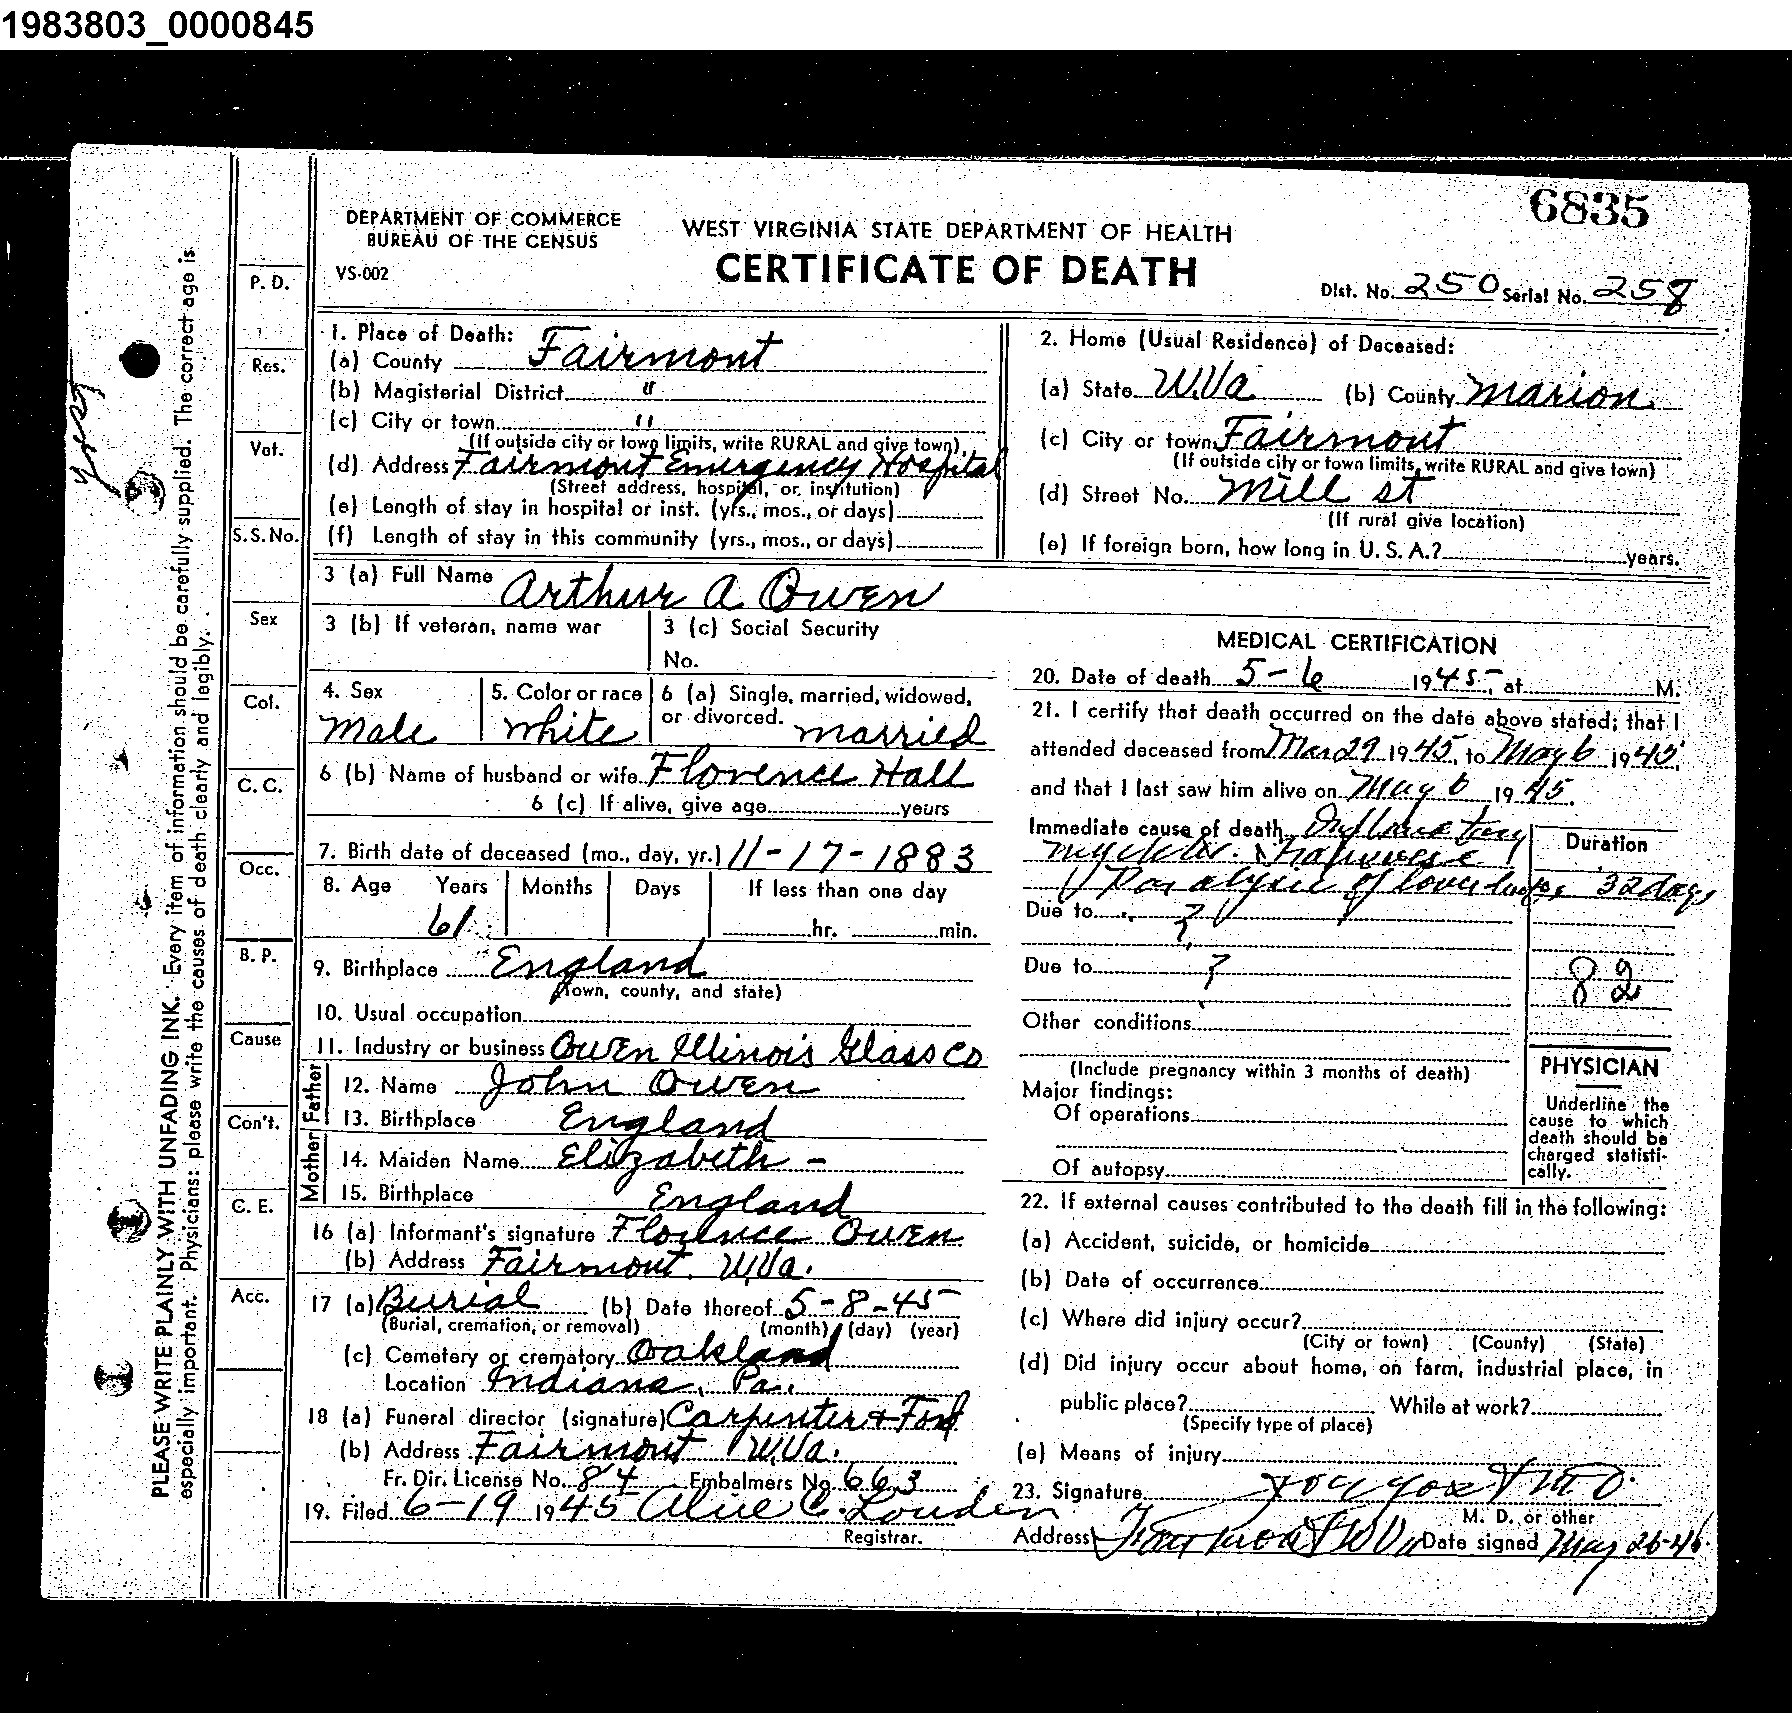 1983803_0000845
6835
DEPARTMENT OF COMMERCE
BUREAU OF THE CENSUS
VS-002
WEST VIRGINIA STATE DEPARTMENT OF HEALTH
CERTIFICATE OF DEATH
Dist. No. 250 Serial No. 258
PLEASE WRITE PLAINLY WITH UNFADING INK. Every item of information should be carefully supplied. The correct age is
especially important. Physicians: please write the causes of death clearly and legibly.
P. D.
Res.
Vet.
S.S.No.
Sex
Col.
C. C.
Occ.
B. P.
Cause
Con't.
C. E.
Acc.
1. Place of Death:
(a) County Fairmont
(b) Magisterial District "
(c) City or town "
(If outside city or town limits, write RURAL and give town)
(d) Address Fairmont Emergency Hospital
(Street address, hospital, or institution)
(e) Length of stay in hospital or inst. (yrs., mos., or days)
(f) Length of stay in this community (yrs., mos., or days)
2. Home (Usual Residence) of Deceased:
(a) State W.Va (b) County Marion
(c) City or town Fairmont
(If outside city or town limits, write RURAL and give town)
(d) Street No. Mill st
(If rural give location)
(e) If foreign born, how long in U. S. A.? years.
3 (a) Full Name Arthur A Owen
3 (b) If veteran, name war
3 (c) Social Security
No.
4. Sex
Male
5. Color or race
White
6 (a) Single, married, widowed,
or divorced. married
6 (b) Name of husband or wife Florence Hall
6 (c) If alive, give age years
7. Birth date of deceased (mo., day, yr.) 11-17-1883
8. Age Years Months Days If less than one day
61 hr. min.
9. Birthplace England
(Town, county, and state)
10. Usual occupation
11. Industry or business Owen Illinois Glass Co
Father
12. Name John Owen
13. Birthplace England
Mother
14. Maiden Name Elizabeth -
15. Birthplace England
16 (a) Informant's signature Florence Owen
(b) Address Fairmont W.Va.
17 (a) Burial (b) Date thereof 5-8-45
(Burial, cremation, or removal) (month) (day) (year)
(c) Cemetery or crematory Oakland
Location Indiana, Pa.
18 (a) Funeral director (signature) Carpenter & Ford
(b) Address Fairmont W.Va.
Fr. Dir. License No. 84 Embalmers No. 663
19. Filed 6-19 1945 Alice C. Louden
Registrar.
MEDICAL CERTIFICATION
20. Date of death 5-6 1945, at M.
21. I certify that death occurred on the date above stated; that I
attended deceased from Mar 29 1945, to May 6 1945,
and that I last saw him alive on May 6 1945.
Immediate cause of death
Duration
Paralysis of lower 32 days
Due to ?
Due to ?
82
Other conditions
(Include pregnancy within 3 months of death)
Major findings:
Of operations
Of autopsy
PHYSICIAN
Underline the
cause to which
death should be
charged statisti-
cally.
22. If external causes contributed to the death fill in the following:
(a) Accident, suicide, or homicide
(b) Date of occurrence
(c) Where did injury occur?
(City or town) (County) (State)
(d) Did injury occur about home, on farm, industrial place, in
public place? While at work?
(Specify type of place)
(e) Means of injury
23. Signature M D.
M. D. or other
Address Fairmont W Va Date signed May 26-45